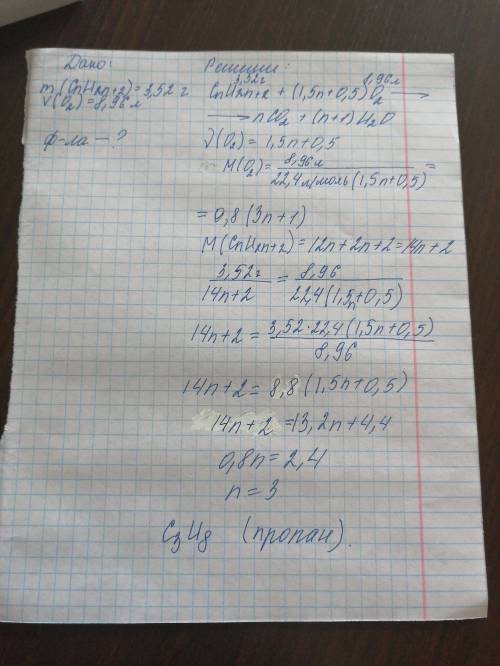 Дано:
m(CnH2n+2)=3,52 г
V(O2)=8,96 л
ф-ла — ?
Решение:
3,52г 8,96 л
CnH2n+2 + (1,5n+0,5)O2 ⟶
⟶ nCO2 + (n+1)H2O
ν(O2) = 1,5n+0,5
M(O2) = 8,96 л / 22,4 л/моль (1,5n+0,5) =
= 0,8(3n+1)
M(CnH2n+2) = 12n+2n+2=14n+2
3,52г / 14n+2 = 8,96 / 22,4(1,5n+0,5)
14n+2 = 3,52·22,4(1,5n+0,5) / 8,96
14n+2 = 8,8(1,5n+0,5)
14n+2 =13,2n+4,4
0,8n=2,4
n=3
C3H8 (пропан).